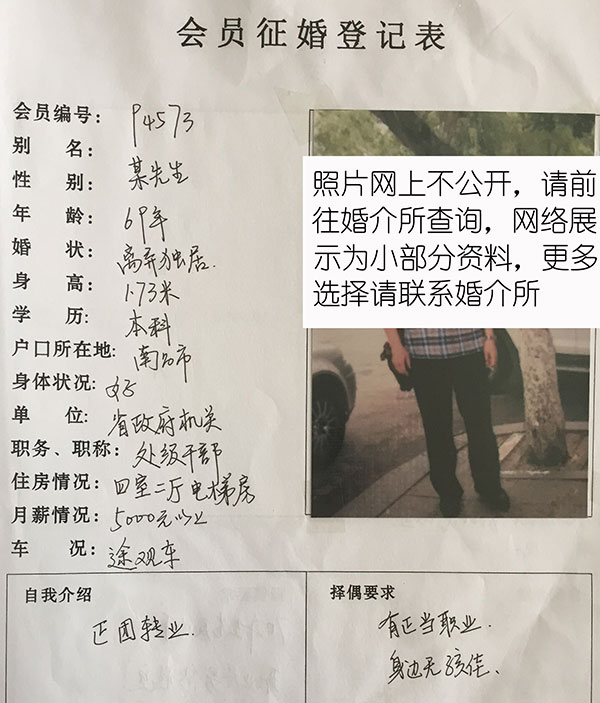 会员征婚登记表
会员编号: P4573
别 名: 某先生
性 别:
年 龄: 69年
婚 状: 离异独居.
身 高: 1.73米
学 历: 本科
户口所在地: 南昌市
身体状况: 好
单 位: 省政府机关
职务、职称: 处级干部
住房情况: 四室二厅电梯房
月薪情况: 5000元以上
车 况: 途观车
照片网上不公开，请前
往婚介所查询，网络展
示为小部分资料，更多
选择请联系婚介所
自我介绍
正团转业.
择偶要求
有正当职业.
身边无孩佳、